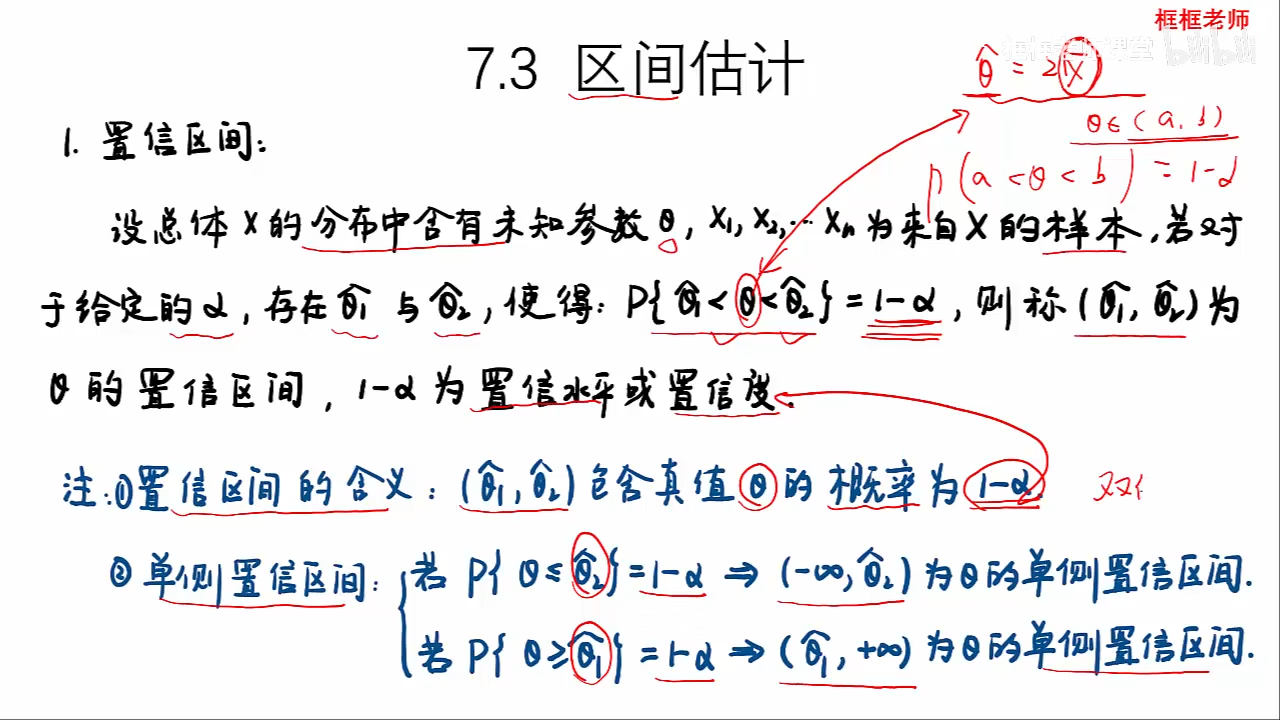 框框老师
bilibili
7.3 区间估计
θ̂ = 2X̄
θ∈(a,b)
P(a<θ<b) = 1-α
1. 置信区间:
设总体X的分布中含有未知参数θ, X₁, X₂, … Xₙ为来自X的样本, 若对
于给定的α, 存在θ̂₁与θ̂₂, 使得: P{θ̂₁<θ<θ̂₂}=1-α, 则称(θ̂₁, θ̂₂)为
θ的置信区间, 1-α为置信水平或置信度.
注:①置信区间的含义: (θ̂₁, θ̂₂)包含真值θ的概率为1-α.
②单侧置信区间: 若P{θ≤θ̂₂}=1-α ⇒ (-∞, θ̂₂)为θ的单侧置信区间.
若P{θ≥θ̂₁}=1-α ⇒ (θ̂₁, +∞)为θ的单侧置信区间.